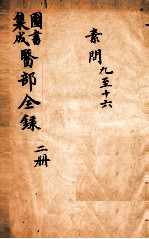 素問 九至十六
圖書
集成 醫部全録
二册